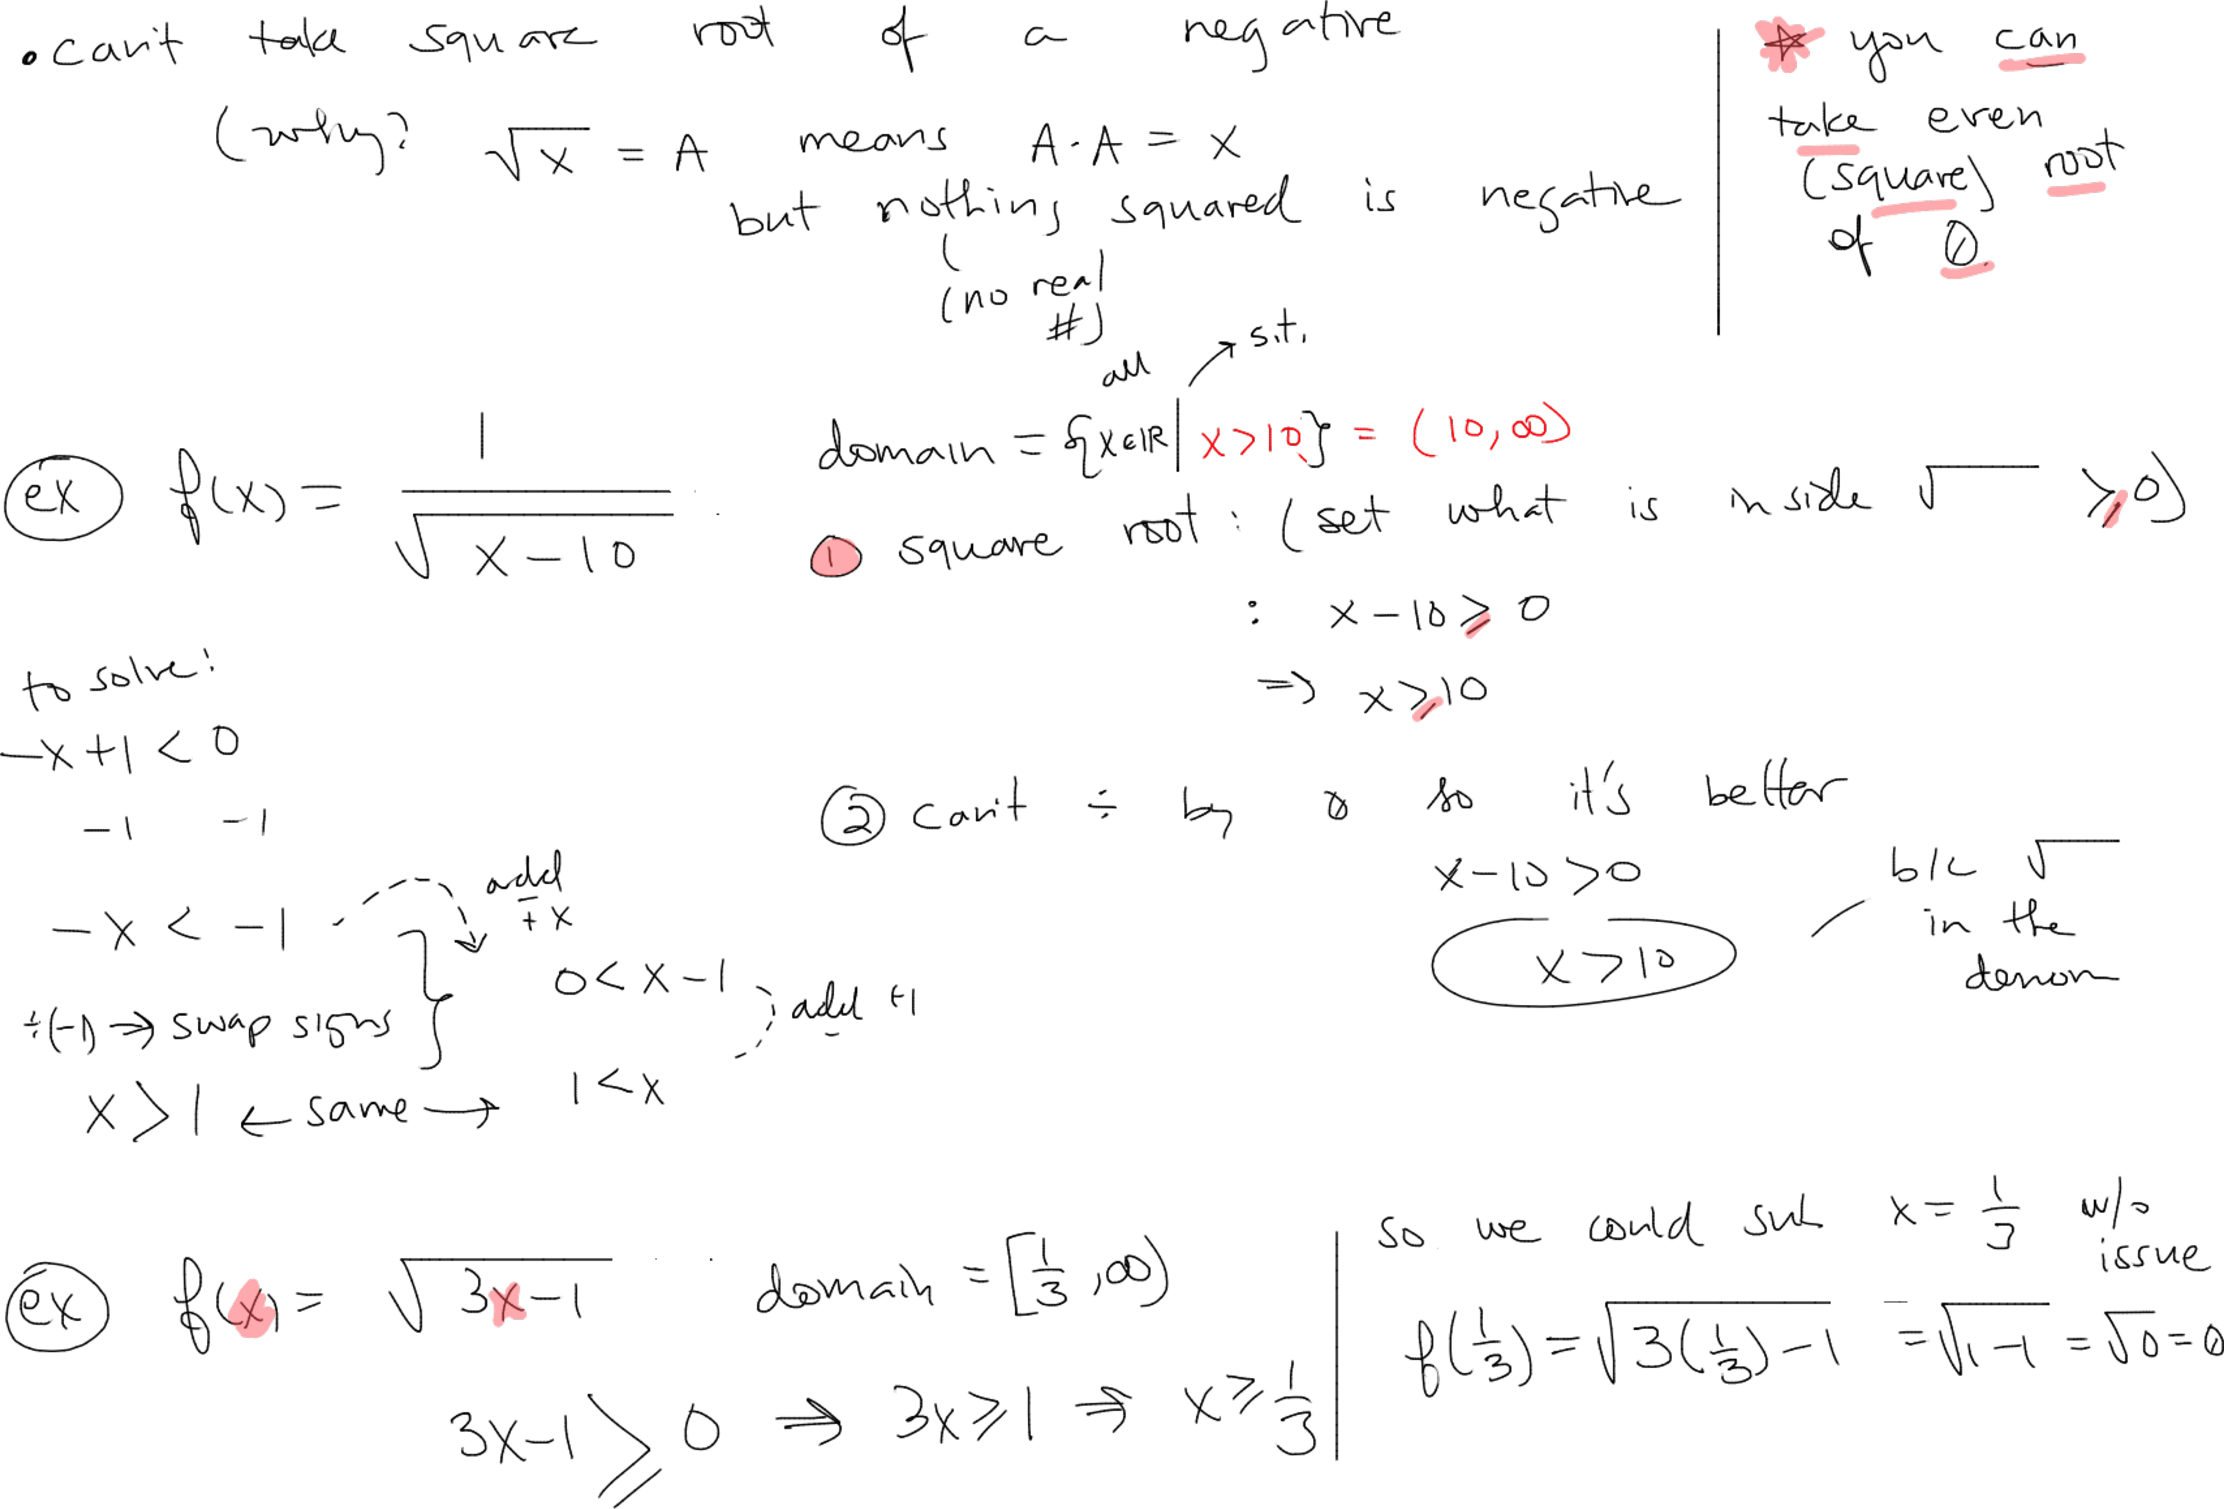 • can't take square root of a negative
(why? √x = A means A·A = x
but nothing squared is negative
(no real #)
☆ you can
take even
(square) root
of 0
all
→ s.t.
ex f(x) = 1/√(x-10)
domain = {x∈ℝ | x>10} = (10,∞)
① square root : (set what is inside √ ≥0)
: x-10 ≥ 0
⇒ x ≥ 10
② can't ÷ by 0 so it's better
x-10 > 0
x > 10
b/c √
in the
denom
to solve:
-x+1 < 0
-1 -1
-x < -1
÷(-1) ⇒ swap signs
x > 1 ← same →
add
+x
0 < x-1
add +1
1 < x
ex f(x) = √(3x-1) domain = [1/3, ∞)
3x-1 ≥ 0 ⇒ 3x ≥ 1 ⇒ x ≥ 1/3
so we could sub x = 1/3 w/o
issue
f(1/3) = √(3(1/3)-1) = √(1-1) = √0 = 0